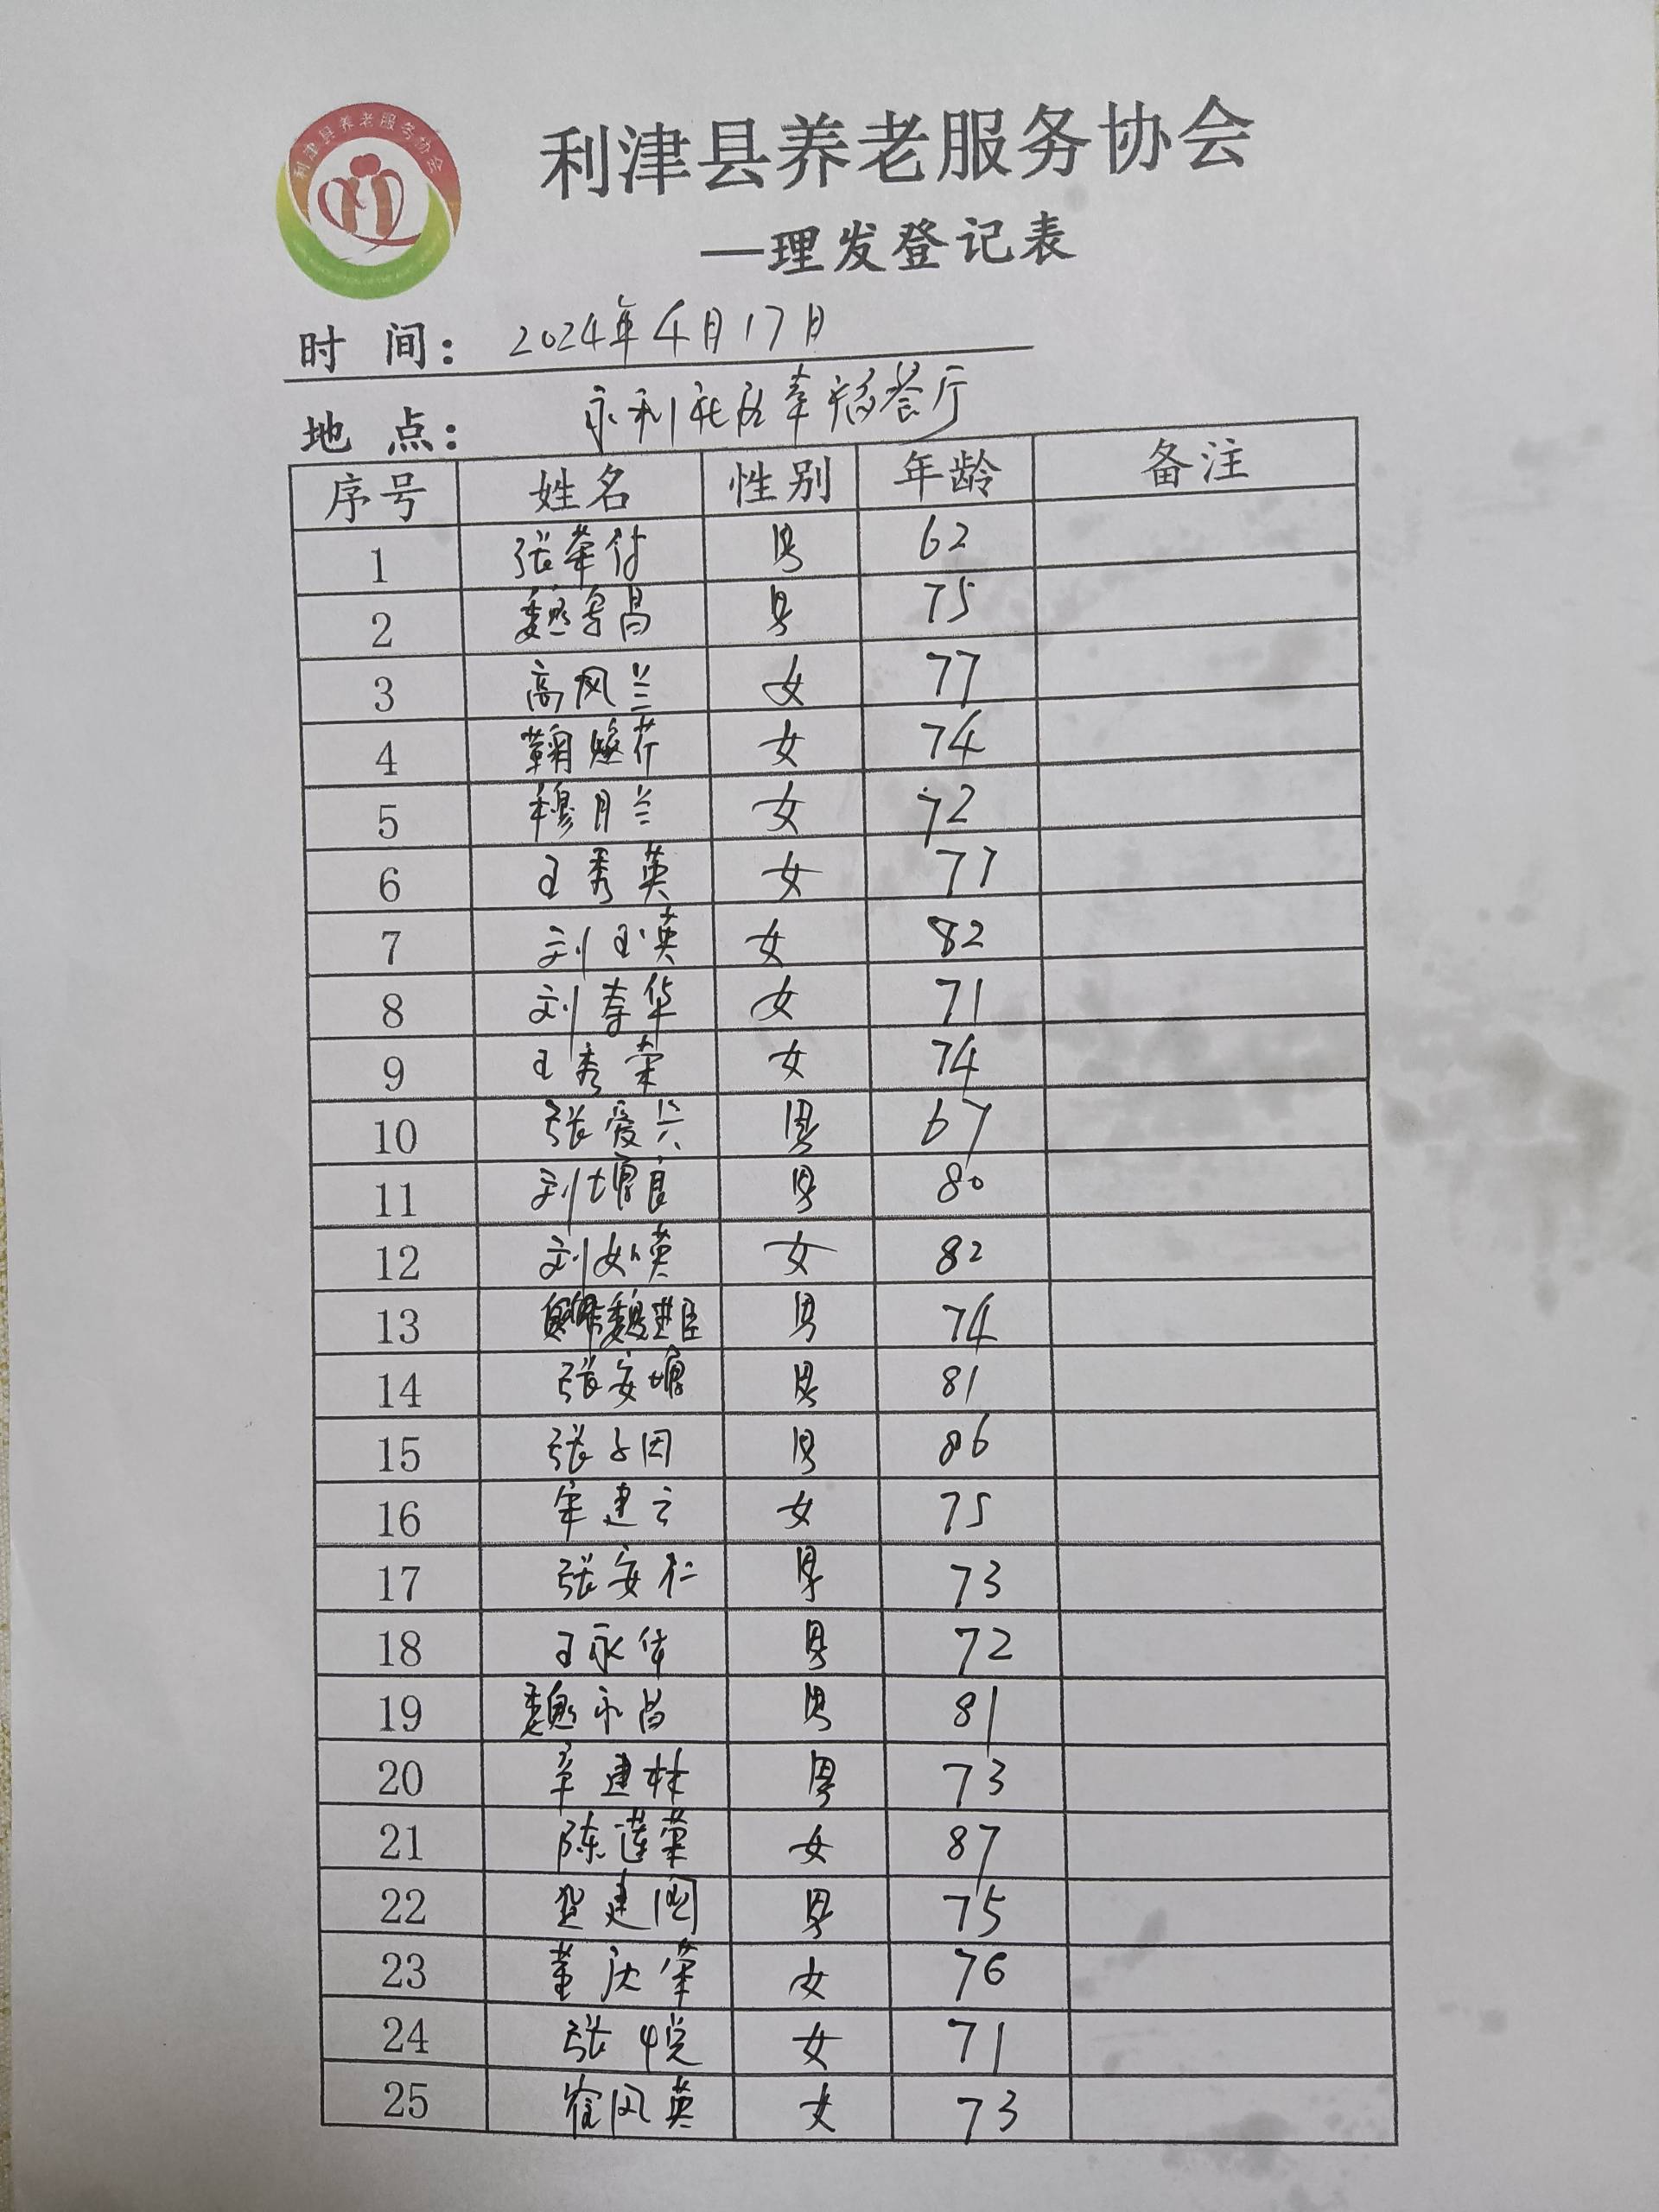 利津县养老服务协会
利津县养老服务协会
—理发登记表
时 间： 2024年4月17日
地 点： 永利社区幸福餐厅
序号 姓名 性别 年龄 备注
1 张荣付 男 62
2 魏 昌 男 75
3 高风兰 女 77
4 鞠 芹 女 74
5 穆月兰 女 72
6 王秀英 女 77
7 刘玉英 女 82
8 刘 华 女 71
9 王秀荣 女 74
10 张爱兴 男 67
11 刘 良 男 80
12 刘如英 女 82
13 魏 臣 男 74
14 张安 男 81
15 张子因 男 86
16 建云 女 75
17 张安仁 男 73
18 王永华 男 72
19 魏永昌 男 81
20 建林 男 73
21 陈莲荣 女 87
22 建国 男 75
23 董庆荣 女 76
24 张悦 女 71
25 崔风英 女 73